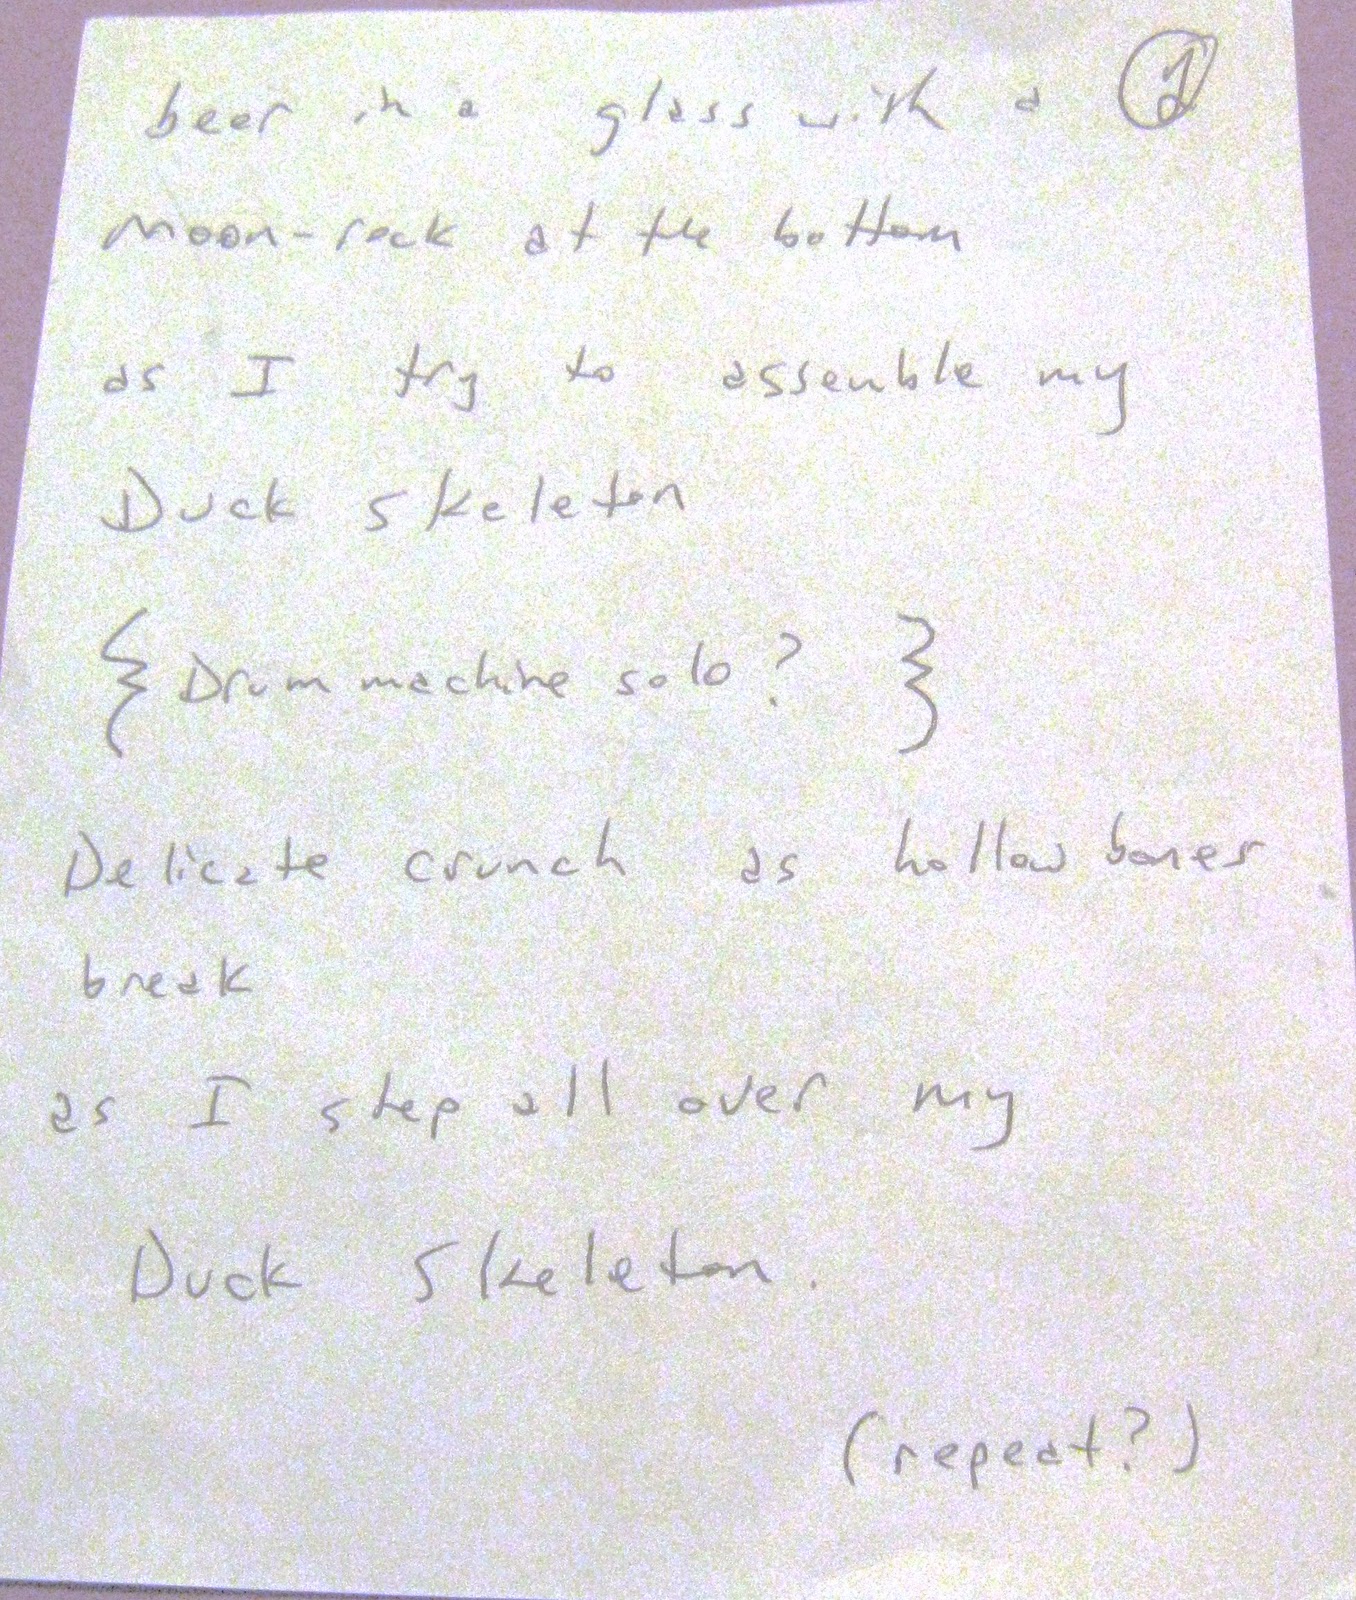 beer in a glass with a
moon-rock at the bottom
as I try to assemble my
Duck skeleton
{ Drum machine solo? }
Delicate crunch as hollow bones
break
as I step all over my
Duck Skeleton.
(repeat?)